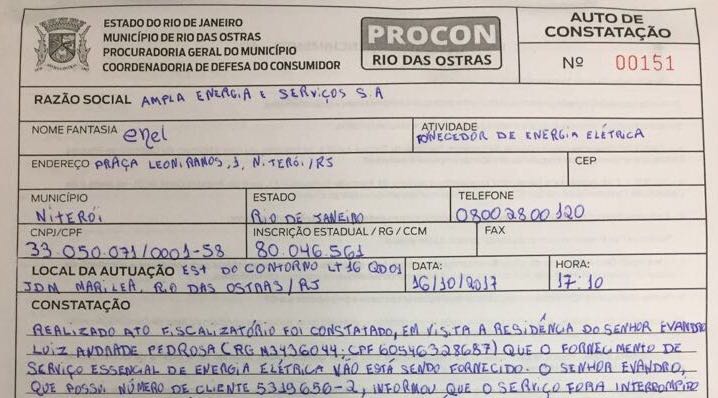 ESTADO DO RIO DE JANEIRO
MUNICÍPIO DE RIO DAS OSTRAS
PROCURADORIA GERAL DO MUNICÍPIO
COORDENADORIA DE DEFESA DO CONSUMIDOR
PROCON
RIO DAS OSTRAS
AUTO DE
CONSTATAÇÃO
Nº 00151
RAZÃO SOCIAL AMPLA ENERGIA E SERVIÇOS S.A
NOME FANTASIA enel
ATIVIDADE
FORNECEDOR DE ENERGIA ELÉTRICA
ENDEREÇO PRAÇA LEONI RAMOS, 1, NITERÓI/RJ
CEP
MUNICÍPIO
NITERÓI
ESTADO
RIO DE JANEIRO
TELEFONE
08002800120
CNPJ/CPF
33.050.071/0001-58
INSCRIÇÃO ESTADUAL / RG / CCM
80.046.561
FAX
LOCAL DA AUTUAÇÃO EST DO CONTORNO LT16 QD01
JDM MARILEA, RIO DAS OSTRAS/RJ
DATA:
16/10/2017
HORA:
17:10
CONSTATAÇÃO
REALIZADO ATO FISCALIZATÓRIO FOI CONSTATADO, EM VISTA A RESIDÊNCIA DO SENHOR EVANDRO
LUIZ ANDRADE PEDROSA (RG M3436044; CPF 60546328687) QUE O FORNECIMENTO DE
SERVIÇO ESSENCIAL DE ENERGIA ELÉTRICA NÃO ESTÁ SENDO FORNECIDO. O SENHOR EVANDRO,
QUE POSSUI NÚMERO DE CLIENTE 5319656-2, INFORMOU QUE O SERVIÇO FORA INTERROMPIDO